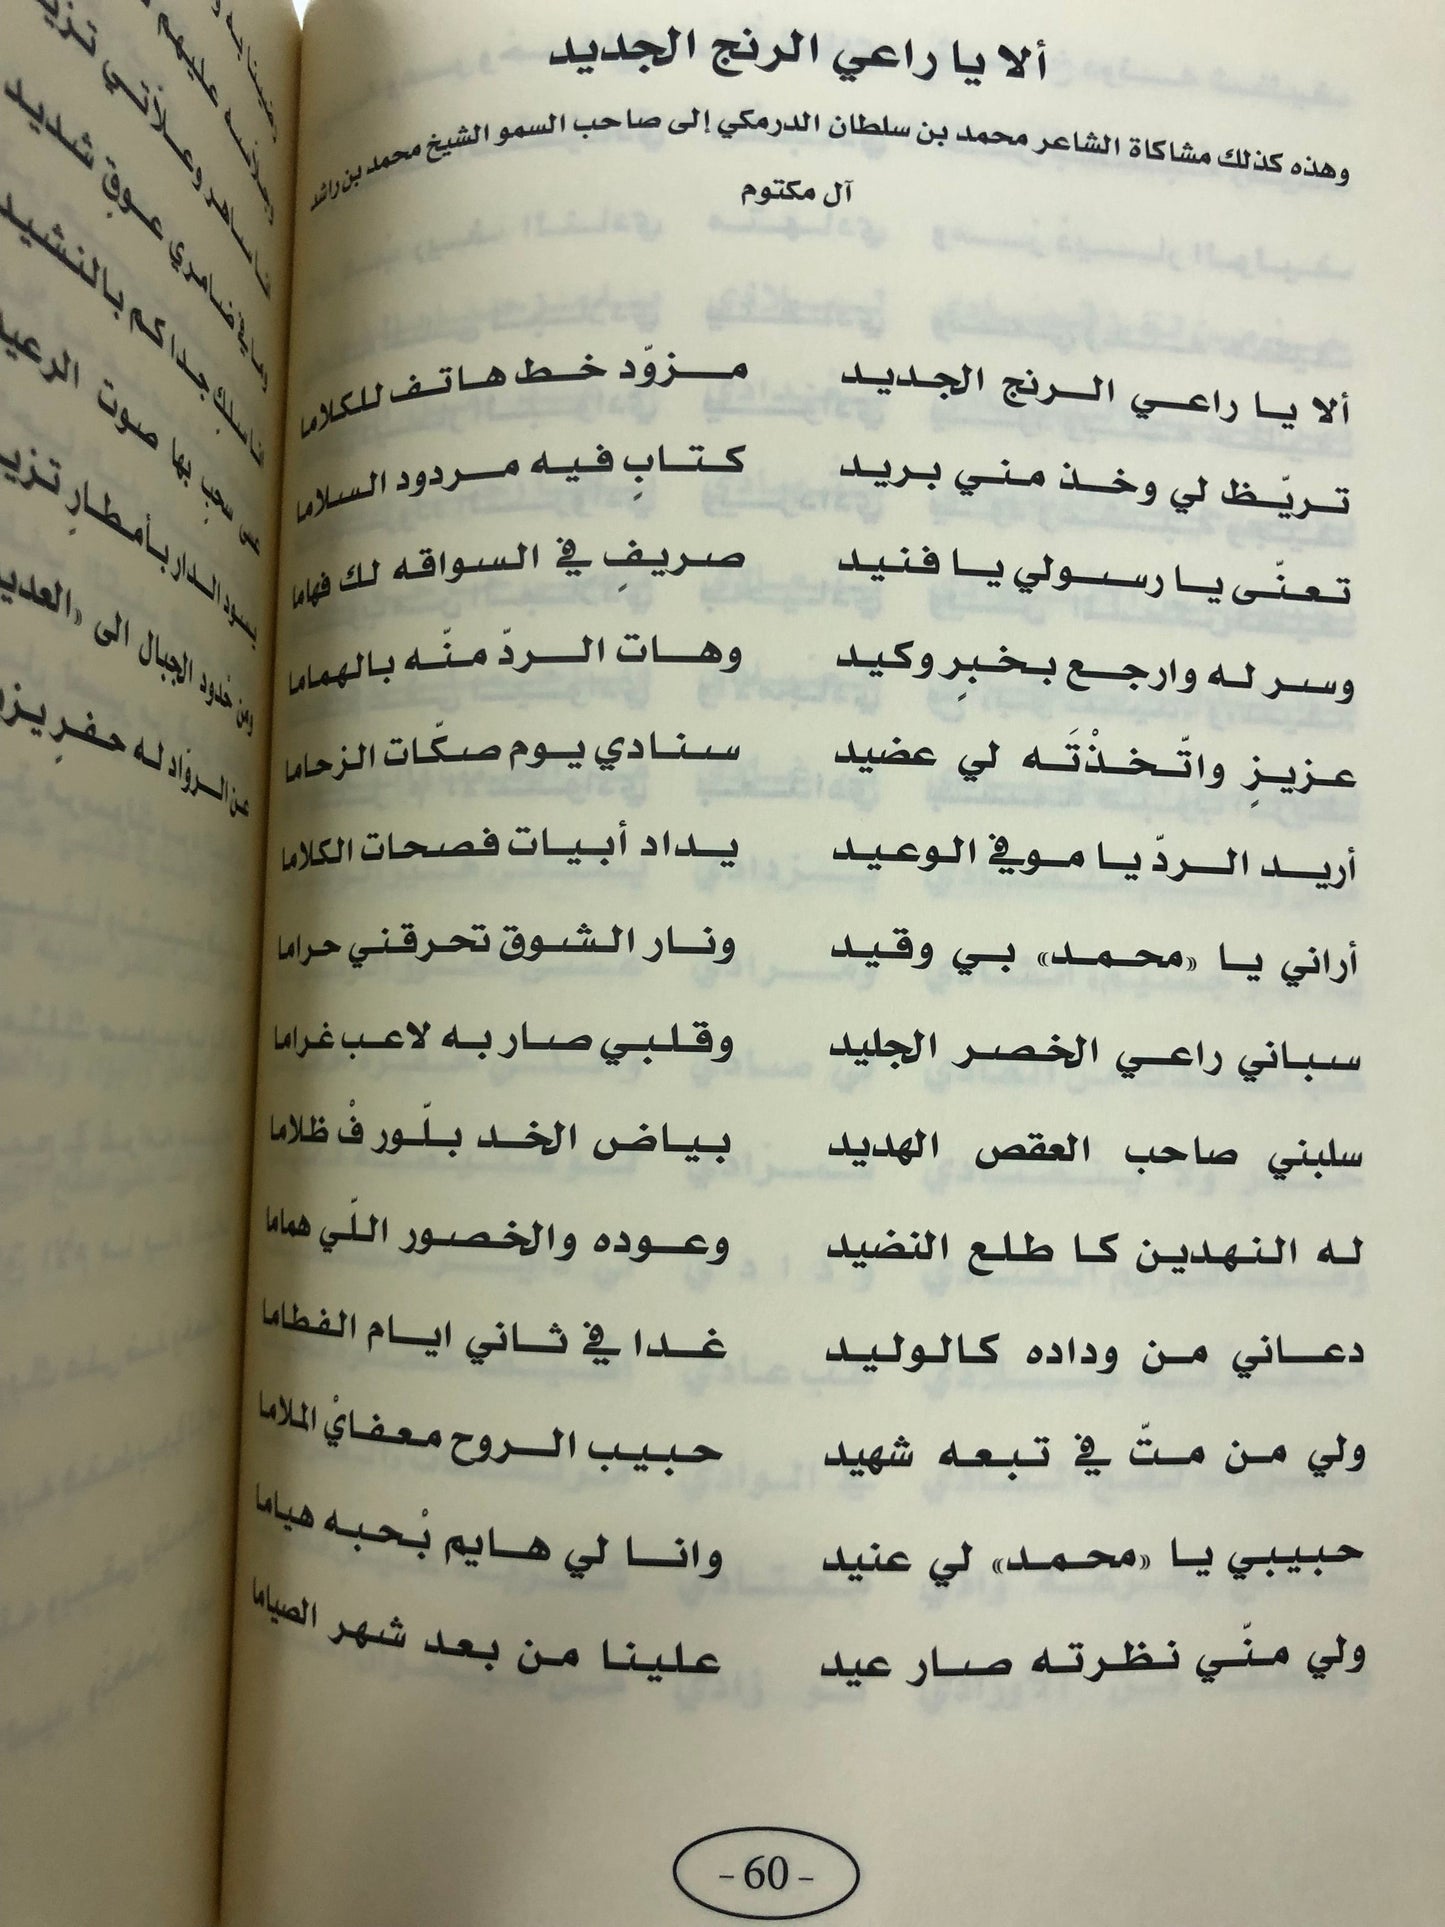 ألا يا راعي الرنج الجديد
وهذه كذلك مشاكاة الشاعر محمد بن سلطان الدرمكي إلى صاحب السمو الشيخ محمد بن راشد
آل مكتوم
ألا يا راعي الرنج الجديد مزوّد خط هاتف للكلاما
تريّظ لي وخذ مني بريد كتابٍ فيه مردود السلاما
تعنّى يا رسولي يا فنيد صريفٍ في السواقه لك فهاما
وسر له وارجع بخبرٍ وكيد وهات الردّ منّه بالهماما
عزيزٍ واتّخذْتَه لي عضيد سنادي يوم صكّات الزحاما
أريد الردّ يا موفي الوعيد يداد أبيات فصحات الكلاما
أراني يا «محمد» بي وقيد ونار الشوق تحرقني حراما
سباني راعي الخصر الجليد وقلبي صار به لاعب غراما
سلبني صاحب العقص الهديد بياض الخد بلّور فْ ظلاما
له النهدين كا طلع النضيد وعوده والخصور اللّي هماما
دعاني من وداده كالوليد غدا في ثاني ايام الفطاما
ولي من متّ في تبعه شهيد حبيب الروح معفايْ الملاما
حبيبي يا «محمد» لي عنيد وانا لي هايم بْحبه هياما
ولي منّي نظرته صار عيد علينا من بعد شهر الصياما
- 60 -
عوق شديد
جداكم بالنشيد
سحبٍ بها صوت الرعيد
الدار بأمطارٍ
حدود الجبال الى «العديد
عن الروّاد له حفرٍ